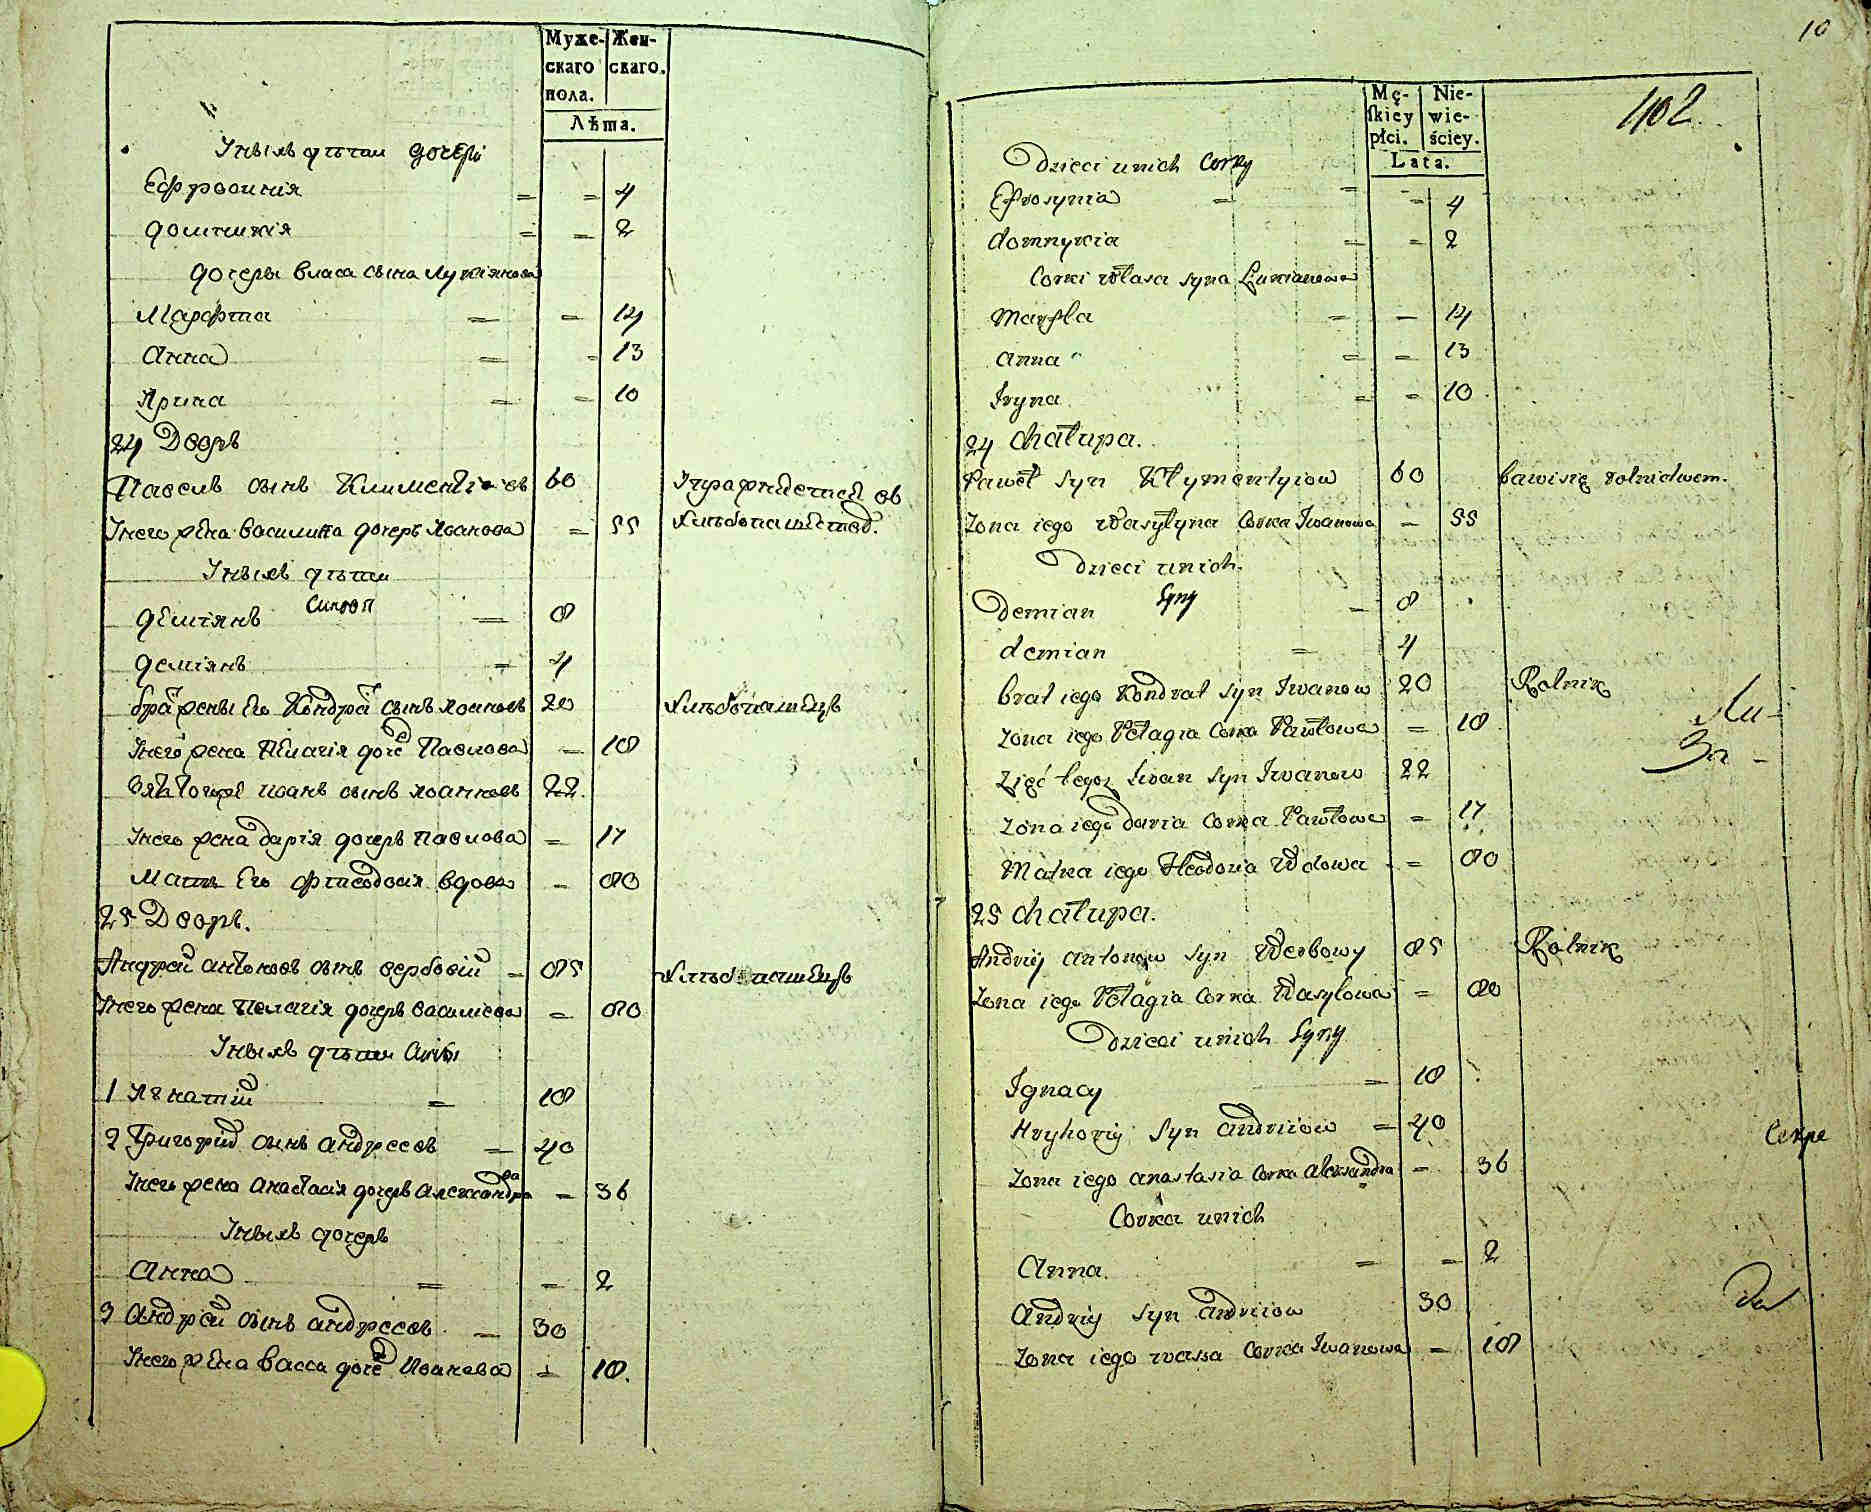 Муже-
скаго
пола.
Жен-
скаго.
Лѣта.
Унихъ дѣти дочери
Ефросинія = = 4
домникія = = 2
дочеры власа сына Лукіянова
Марфта = = 14
Анна = = 13
Ярина = = 10
24 Дворъ
Павелъ сынъ Климентіевъ 60 Упражняется въ
Унего жена василина дочеръ Иванова = 55 хлѣбопашествѣ.
Унихъ дѣти
синов
деміянъ = 8
деміянъ = 4
братъ жены Его Кондрат сынъ Иановъ 20 хлѣбопашецъ
Унего жена Пелагія доче Павлова = 18
Зять тогоже иванъ сынъ иванновъ 22.
Унего жена дарія дочеръ павлова = 17
Мать Его фтеодосія вдова = 80
25 Дворъ.
Андрей антоновъ сынъ вербовій = 85 хлѣбопашецъ
Унего жена Пелагія дочеръ василіева = 80
Унихъ дѣти Сини
1 Игнатій = 18
2 Григорій сынъ андреевъ = 40
Унего жена анастасія дочеръ александрова = 36
Унихъ дочеръ
Анна = = 2
3 Андрей сынъ андреевъ = 30
Унего жена васса доче Иванова = 18.
10
402.
Mę-
skiey
płci.
Nie-
wie-
ściey.
Lata.
Dzieci unich Corky
Efrosynia = = 4
domnykia = = 2
Corki własa syna Łukianowa
Marfta = = 14
anna = = 13
Iryna = = 10
24 chałupa.
Paweł syn Kłymentyiow 60 bawi się rolnictwem.
Zona iego wasyłyna Corka Iwanowa = 55
Dzieci unich.
Syny
Demian = 8
demian = 4
brat iego Kondrat syn Iwanow 20 Rolnik
Zona iego Pełagia Corka Pawłowa = 18
Zięć tegoż Iwan syn Iwanow 22
Zona iego daria Corka Pawłowa = 17
Matka iego Fteodosia Wdowa = 80
25 chałupa.
Andrij antonow syn Werbowy 85 Rolnik
Zona iego Pełagia Corka Wasylowa = 80
Dzieci unich Syny
Ignacy = 18
Hryhorij syn andriiow = 40
Zona iego anastasia Corka alexandra = 36
Corka unich
Anna = = 2
Andrij syn andriiow 30
Zona iego wassa Corka Iwanowa = 18